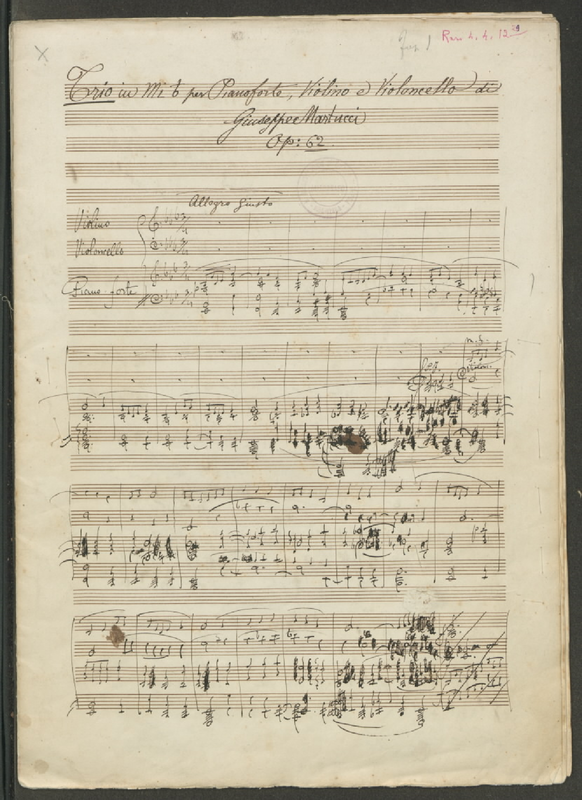 Rev. 4. 4. 12
Trio in Mi b per Pianoforte, Violino e Violoncello di
Giuseppe Martucci
Op: 62
Allegro giusto
Violino
Violoncello
Piano forte